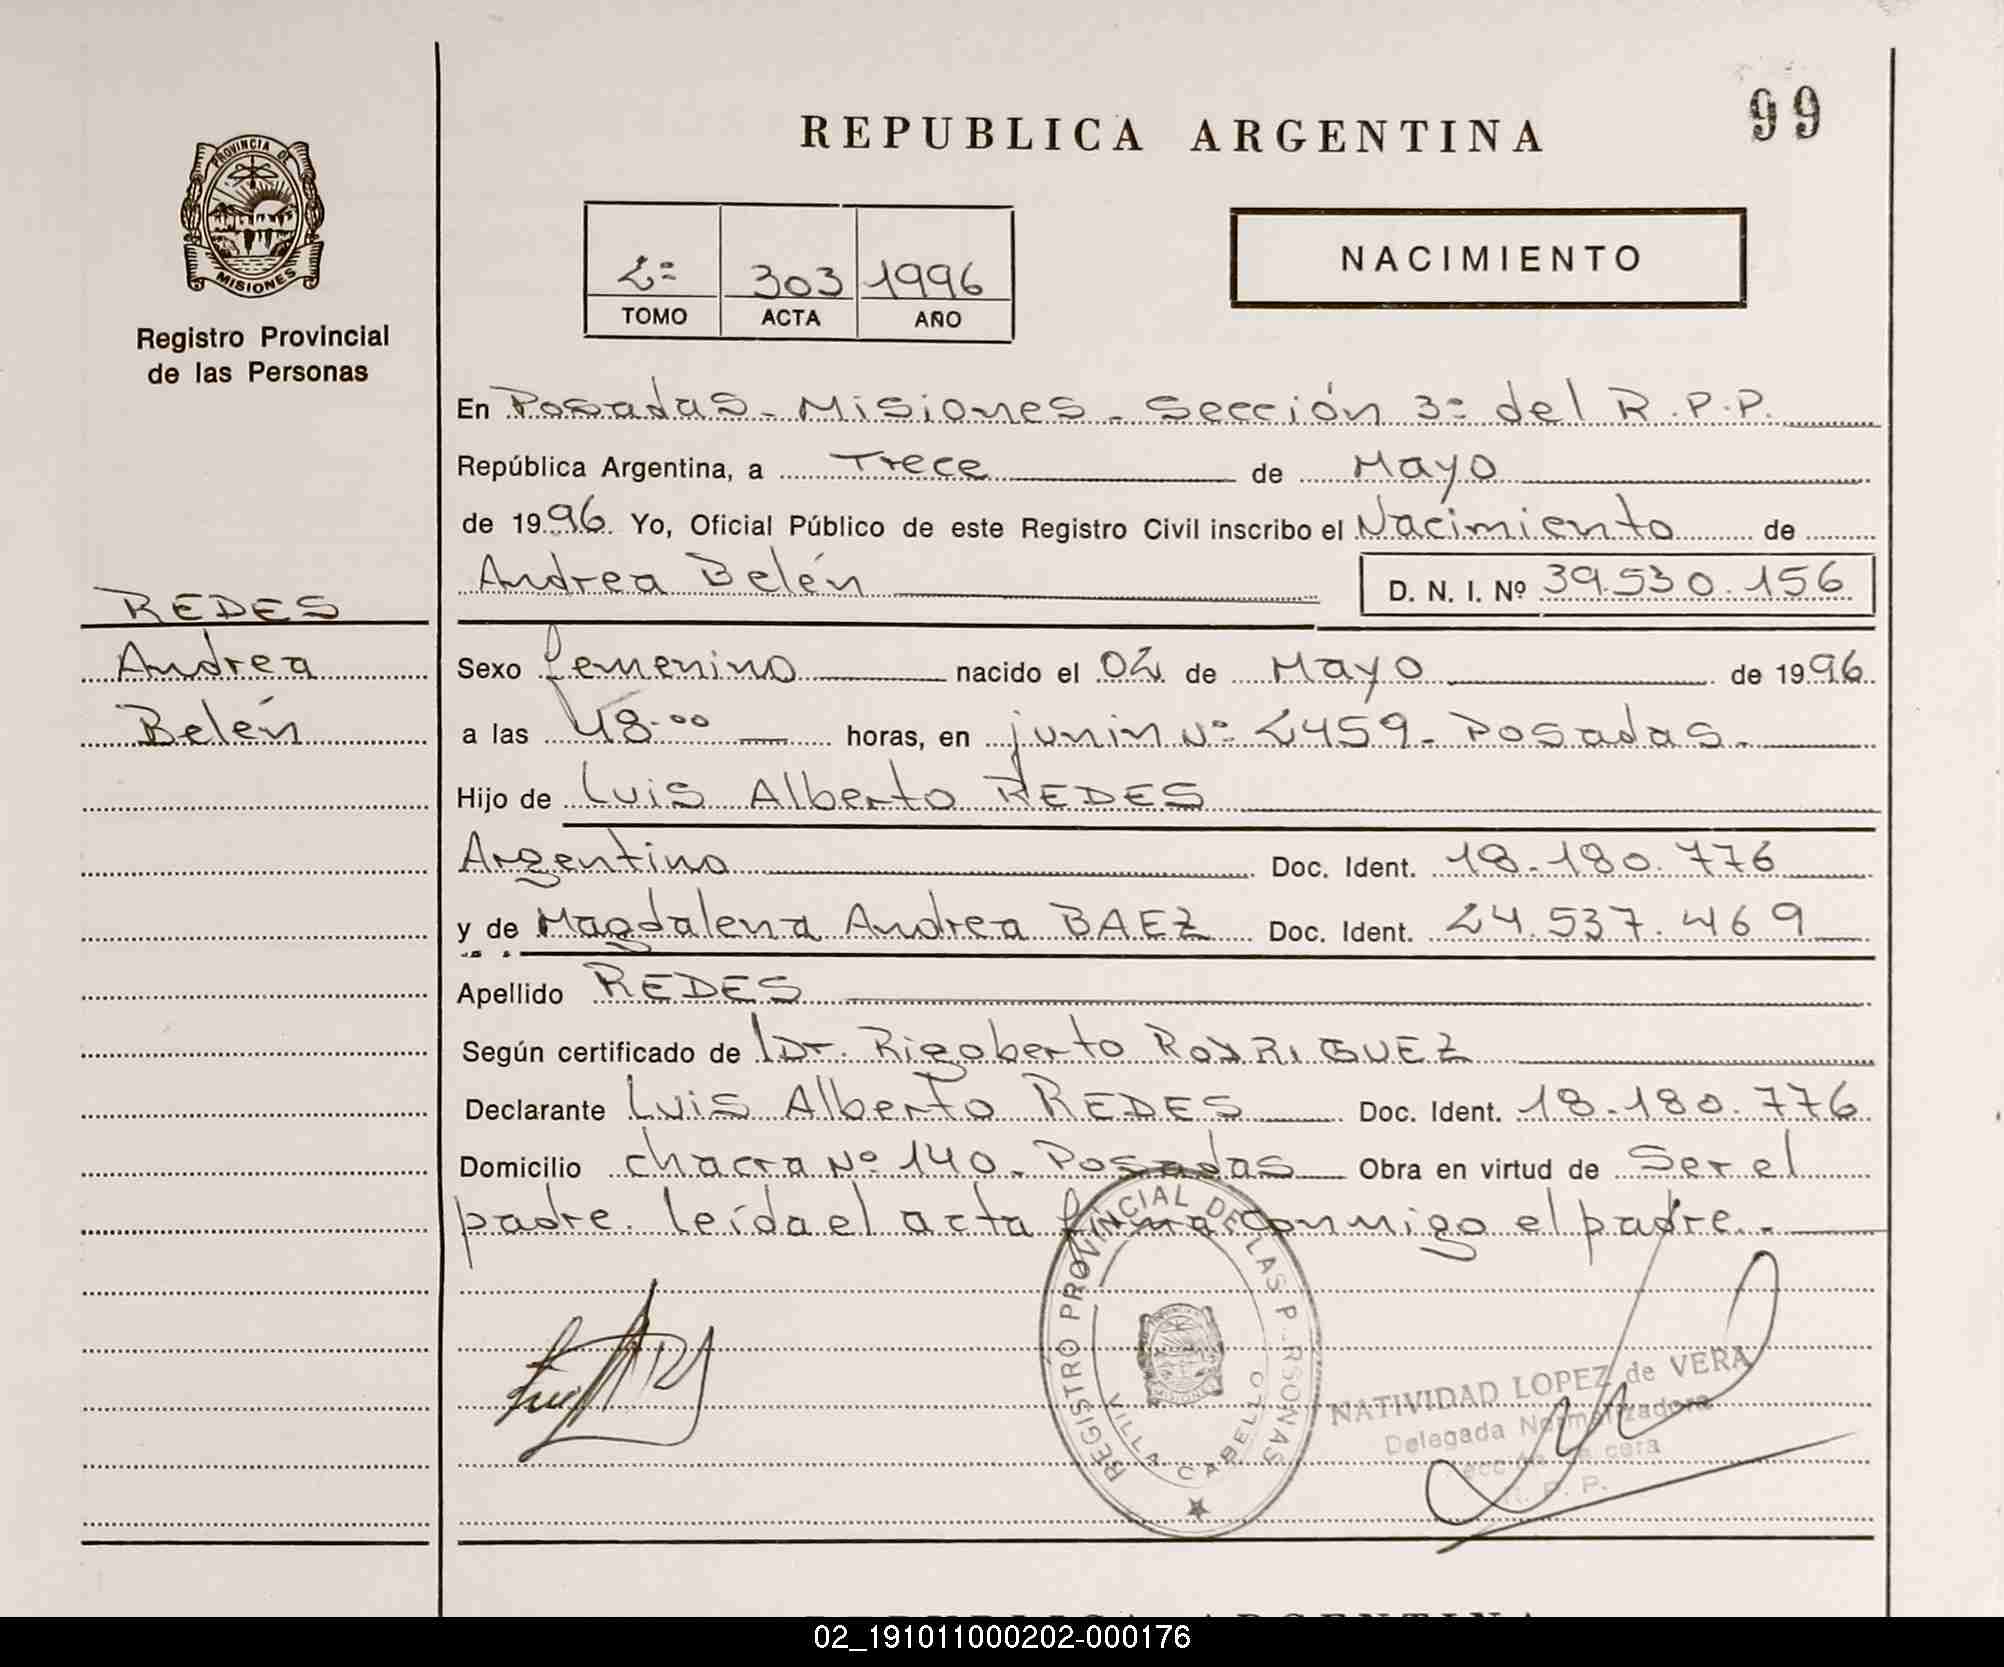 PROVINCIA DE
MISIONES
Registro Provincial
de las Personas
REPUBLICA ARGENTINA
99
2º 303 1996
TOMO ACTA AÑO
NACIMIENTO
En Posadas - Misiones - Sección 3º del R.P.P.
República Argentina, a Trece de Mayo
de 1996 Yo, Oficial Público de este Registro Civil inscribo el Nacimiento de
Andrea Belén D. N. I. Nº 39.530.156
REDES
Andrea
Belén
Sexo femenino nacido el 02 de Mayo de 1996
a las 18.00 horas, en junin Nº 2459 - Posadas.
Hijo de Luis Alberto REDES
Argentino Doc. Ident. 18.180.776
y de Magdalena Andrea BAEZ Doc. Ident. 24.537.469
Apellido REDES
Según certificado de Dr. Rigoberto RODRIGUEZ
Declarante Luis Alberto REDES Doc. Ident. 18.180.776
Domicilio chacra Nº 140 - Posadas Obra en virtud de Ser el
padre. leída el acta firma conmigo el padre.-
REGISTRO PROVINCIAL DE LAS P RSONAS
VILLA CABELLO
NATIVIDAD LOPEZ de VERA
Delegada Normalizadora
R. P. P.
02_191011000202-000176